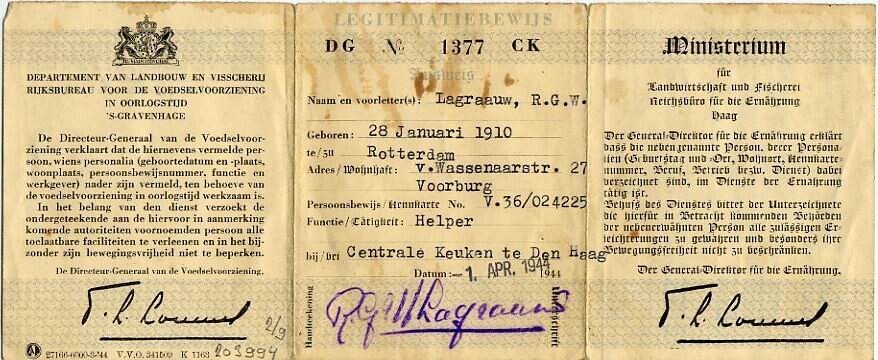 DEPARTEMENT VAN LANDBOUW EN VISSCHERIJ
RIJKSBUREAU VOOR DE VOEDSELVOORZIENING
IN OORLOGSTIJD
'S-GRAVENHAGE
De Directeur-Generaal van de Voedselvoor-
ziening verklaart dat de hiernevens vermelde per-
soon, wiens personalia (geboortedatum en -plaats,
woonplaats, persoonsbewijsnummer, functie en
werkgever) nader zijn vermeld, ten behoeve van
de voedselvoorziening in oorlogstijd werkzaam is.
In het belang van den dienst verzoekt de
ondergeteekende aan de hiervoor in aanmerking
komende autoriteiten voornoemden persoon alle
toelaatbare faciliteiten te verleenen en in het bij-
zonder zijn bewegingsvrijheid niet te beperken.
De Directeur-Generaal van de Voedselvoorziening.
2/9
203994
27166-6000-3-'44 V.V.O. 341509 K 1163
LEGITIMATIEBEWIJS
DG № 1377 CK
Ausweis
Naam en voorletter(s): Lagraauw, R.G.W.
Geboren: 28 Januari 1910
te/zu Rotterdam
Adres/Wohnhaft: v.Wassenaarstr. 27
Voorburg
Persoonsbewijs/Kennkarte No. V.36/024225
Functie/Tätigkeit: Helper
bij/bei Centrale Keuken te Den Haag
Datum:- 1. APR. 1944 1944
Handteekening
R.G.W. Lagraauw
Unterschrift
Ministerium
für
Landwirtschaft und Fischerei
Reichsbüro für die Ernährung
Haag
Der General-Direktor für die Ernährung erklärt
dass die nebengenannte Person, derer Persona-
lien (Geburtstag und -Ort, Wohnort, Kennkarte-
nummer, Beruf, Betrieb bezw. Dienst) dabei
verzeichnet sind, im Dienste der Ernährung
tätig ist.
Behufs des Dienstes bittet der Unterzeichnete
die hierfür in Betracht kommenden Behörden
der nenerwähnten Person alle zulässigen Er-
leichterungen zu gewähren und besonders ihre
Bewegungsfreiheit nicht zu beschränken.
Der General-Direktor für die Ernährung.